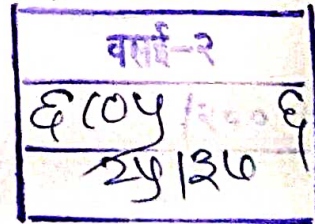 वसई-२
६८०५/२००६
२५/३७